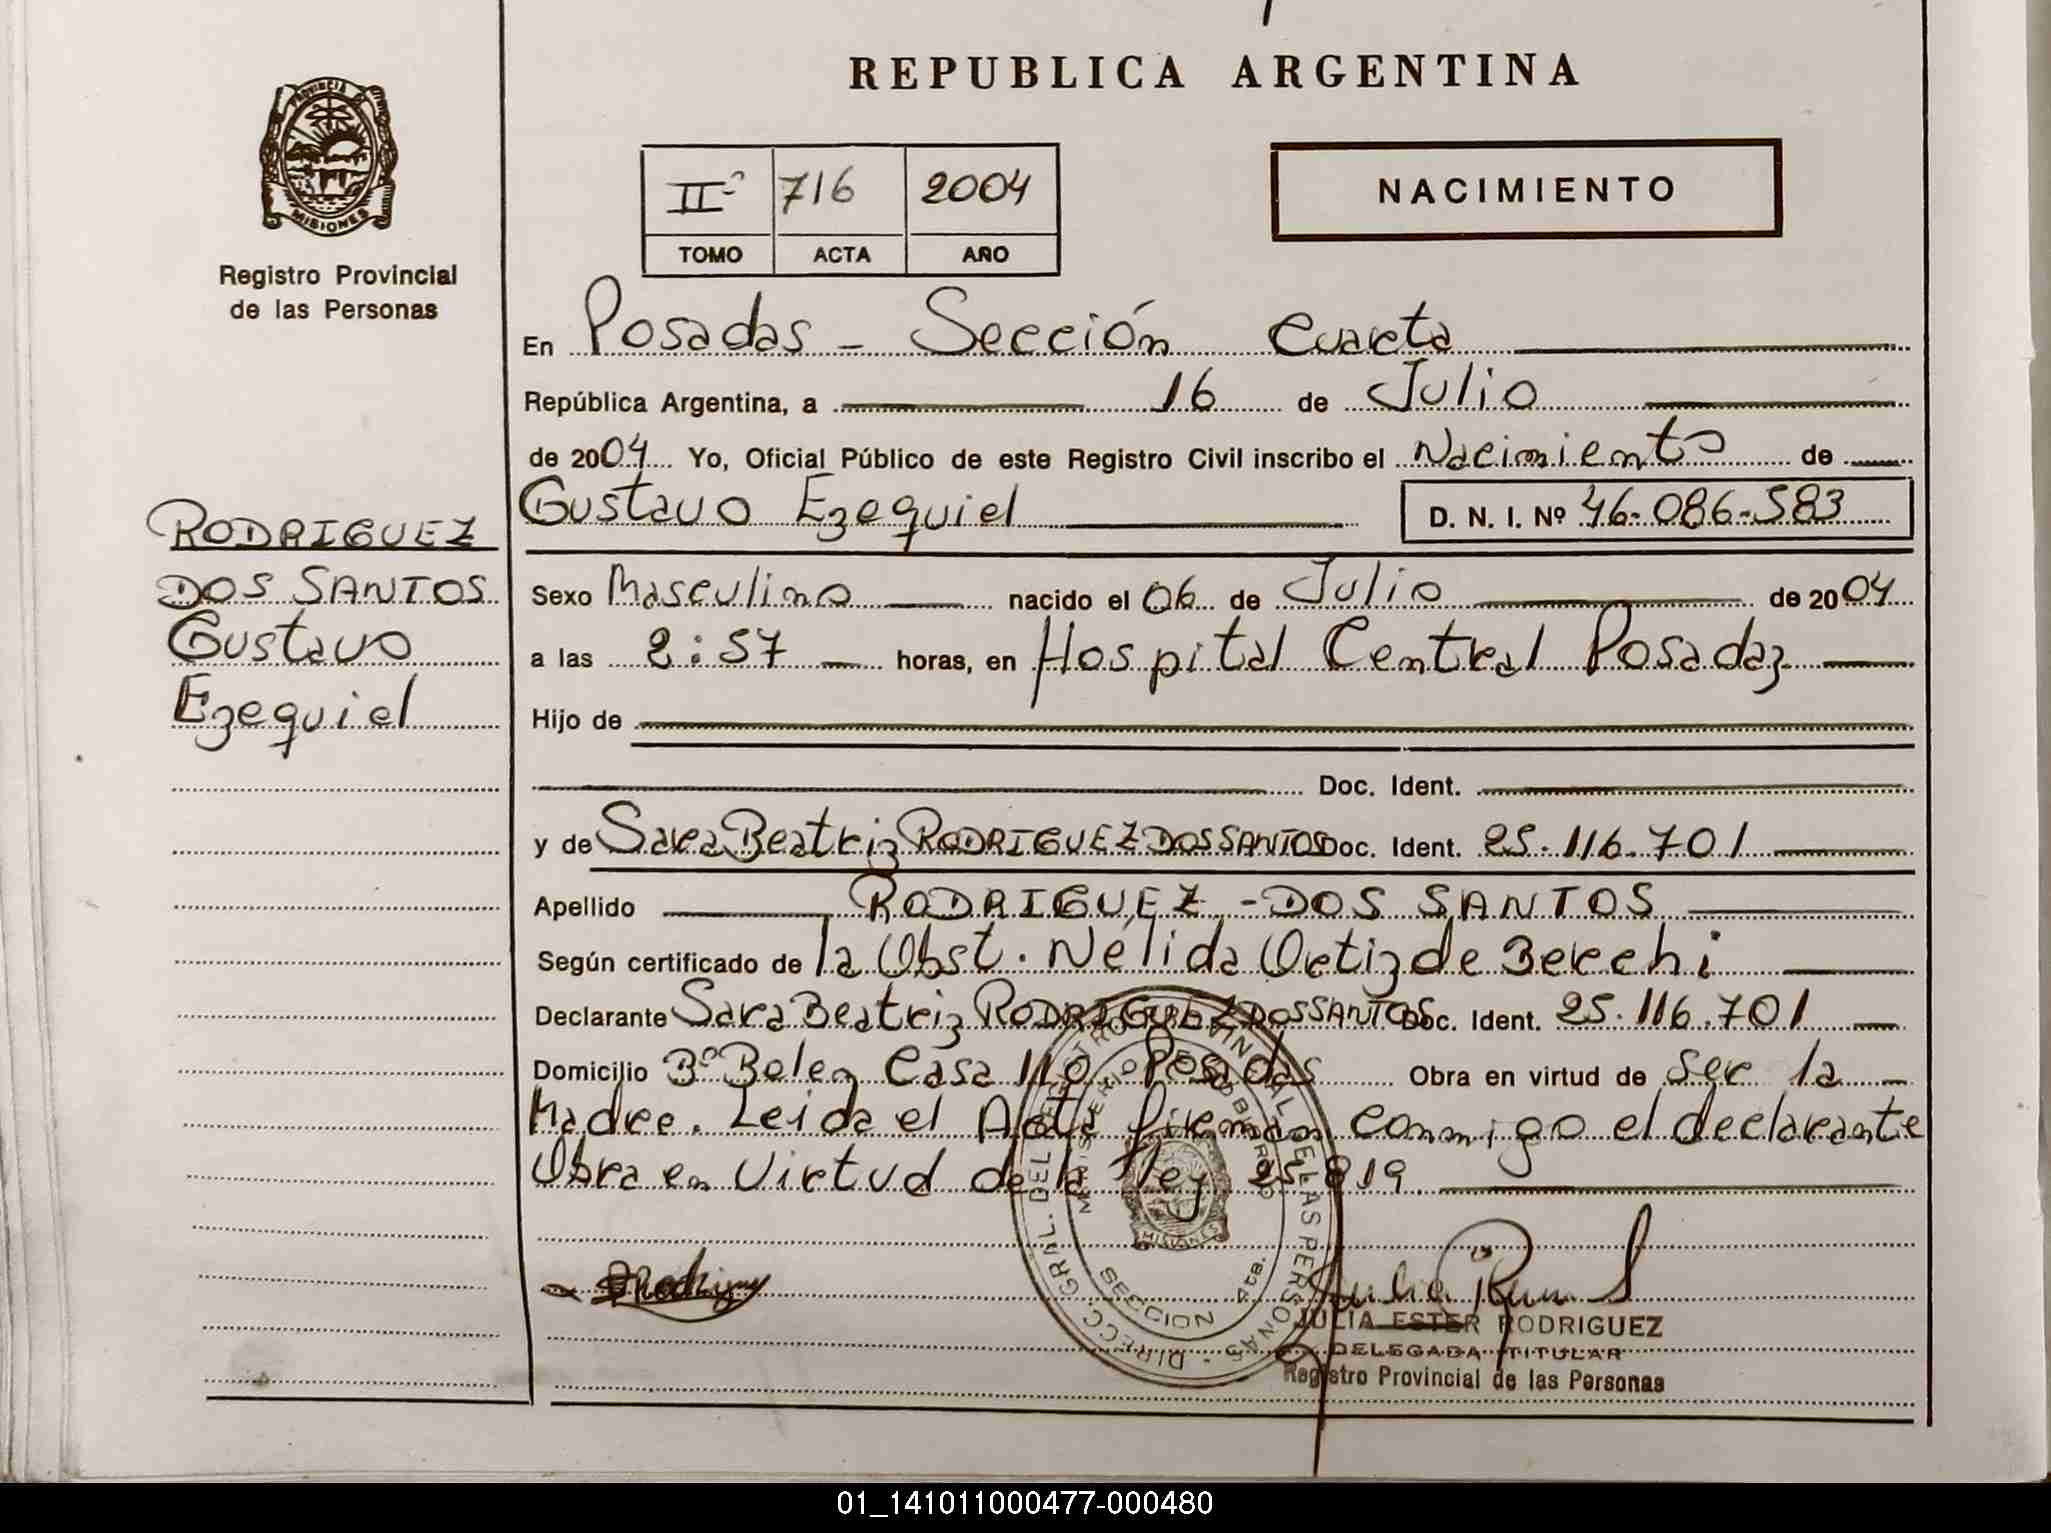 REPUBLICA ARGENTINA
PROVINCIA DE
MISIONES
Registro Provincial
de las Personas
IIº 716 2004
TOMO ACTA AÑO
NACIMIENTO
En Posadas - Sección Cuarta
República Argentina, a 16 de Julio
de 2004 Yo, Oficial Público de este Registro Civil inscribo el Nacimiento de
Gustavo Ezequiel D. N. I. Nº 46-086-583
RODRIGUEZ
DOS SANTOS
Gustavo
Ezequiel
Sexo Masculino nacido el 06 de Julio de 2004
a las 2:57 horas, en Hospital Central Posadas
Hijo de
Doc. Ident.
y de Sara Beatriz RODRIGUEZ DOS SANTOS Doc. Ident. 25.116.701
Apellido RODRIGUEZ - DOS SANTOS
Según certificado de la Obst. Nélida Ortiz de Berchi
Declarante Sara Beatriz RODRIGUEZ DOS SANTOS Doc. Ident. 25.116.701
Domicilio Bº Belen Casa 110 Posadas Obra en virtud de ser la
Madre. Leida el Acta firman conmigo el declarante
Obra en Virtud de la ley 25.819.
DIRECC. GRAL. DEL REGISTRO PROVINCIAL DE LAS PERSONAS
MINISTERIO DE GOBIERNO
MISIONES
SECCION 4ta.
JULIA ESTER RODRIGUEZ
DELEGADA TITULAR
Registro Provincial de las Personas
01_141011000477-000480